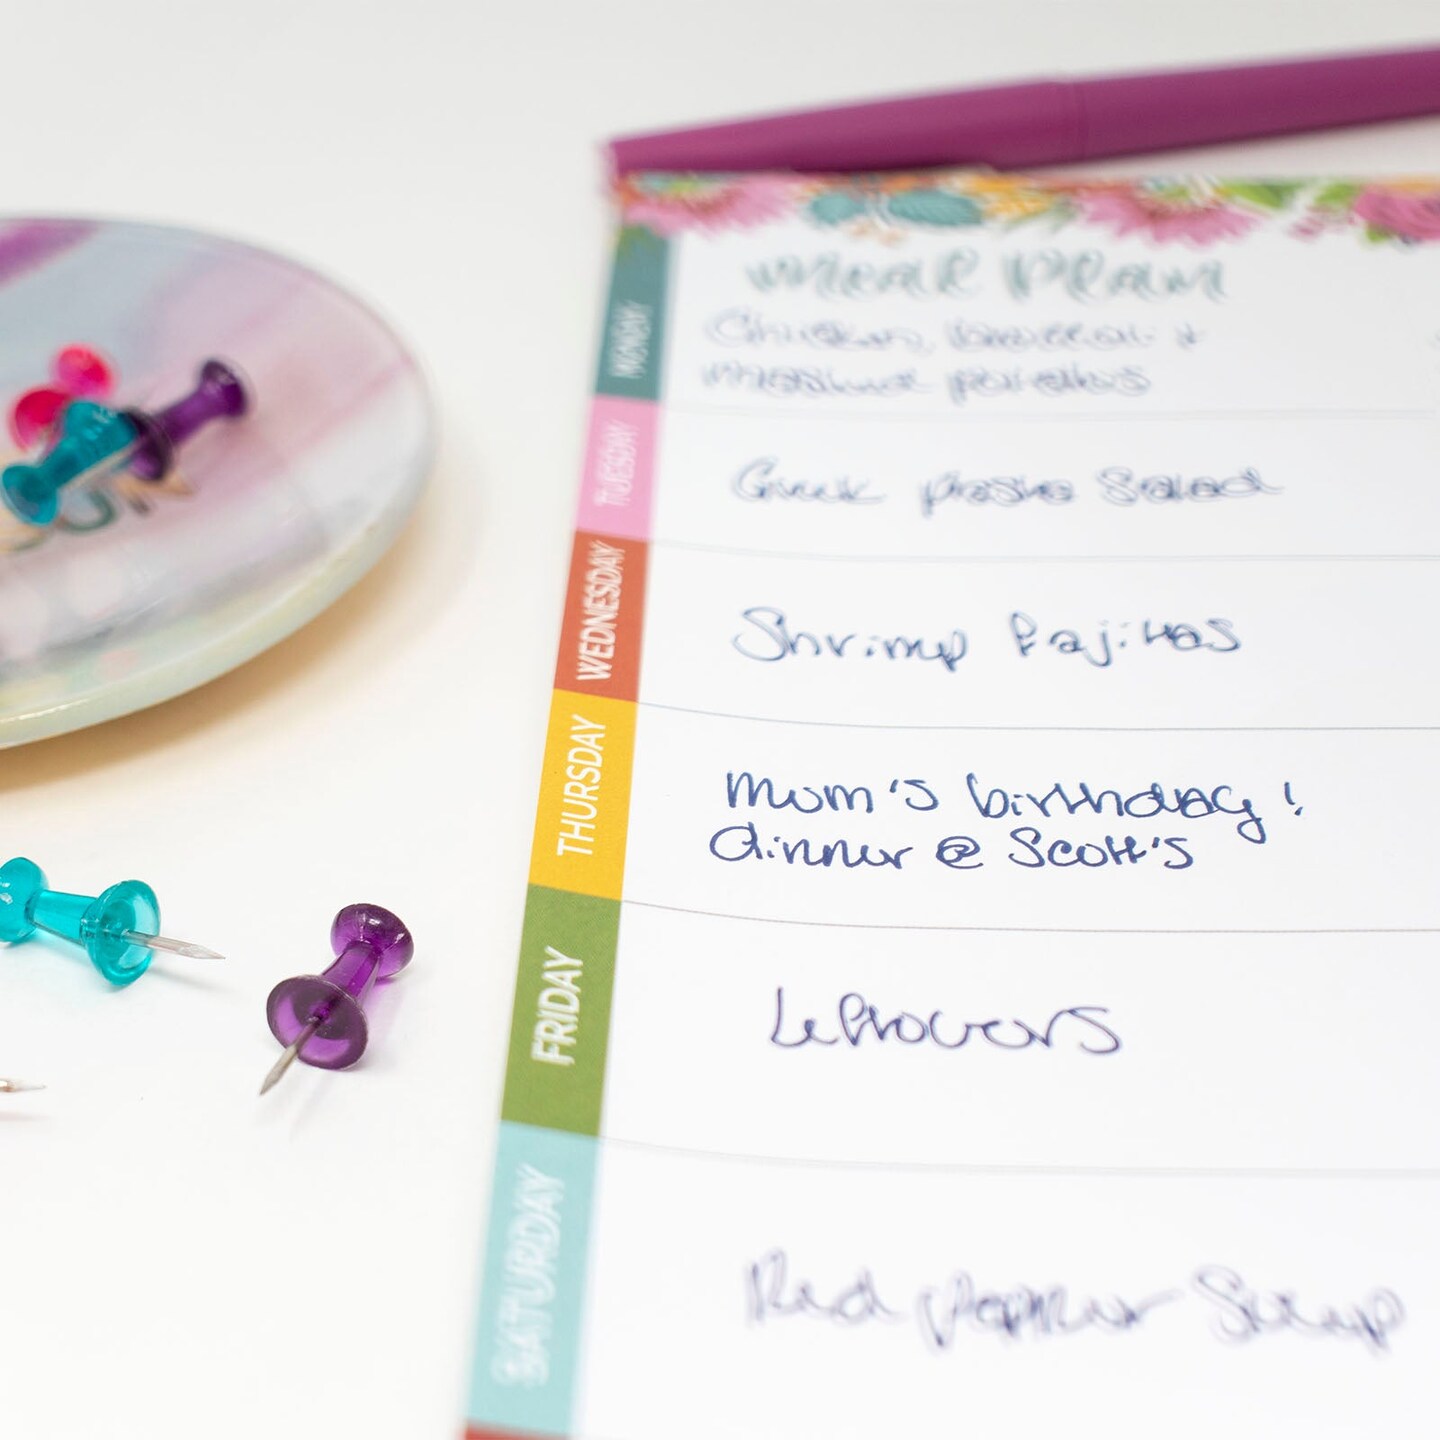 meal plan
MONDAY
Chicken, broccoli +
mashed potatoes
TUESDAY
Greek pasta salad
WEDNESDAY
Shrimp fajitas
THURSDAY
Mom's birthday!
dinner @ Scott's
FRIDAY
Leftovers
SATURDAY
Red pepper Soup